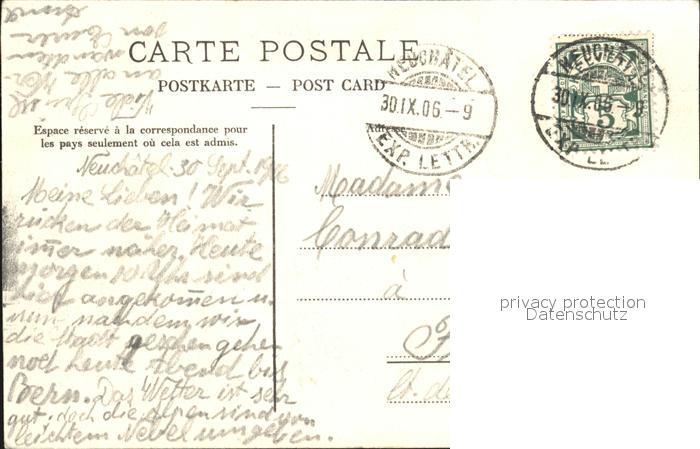 CARTE POSTALE
POSTKARTE — POST CARD
Espace réservé à la correspondance pour
les pays seulement où cela est admis.
Adresse
NEUCHÂTEL
30.IX.06.–9
EXP. LETTR.
NEUCHÂTEL
30.IX.06.–9
5
Neuchâtel 30 Sept. 1906
Meine Lieben! Wir
rücken der Heimat
immer näher. Heute
morgen 10 Uhr sind
hier angekommen u.
nun nachdem wir
die Stadt gesehen gehen
noch heute Abend bis
Bern. Das Wetter ist sehr
gut, doch die Alpen sind von
leichtem Nebel umgeben.
Viele Grüsse
an alle
von Eurer
Anna
Madame
Conrad
à
ct. de
privacy protection
Datenschutz